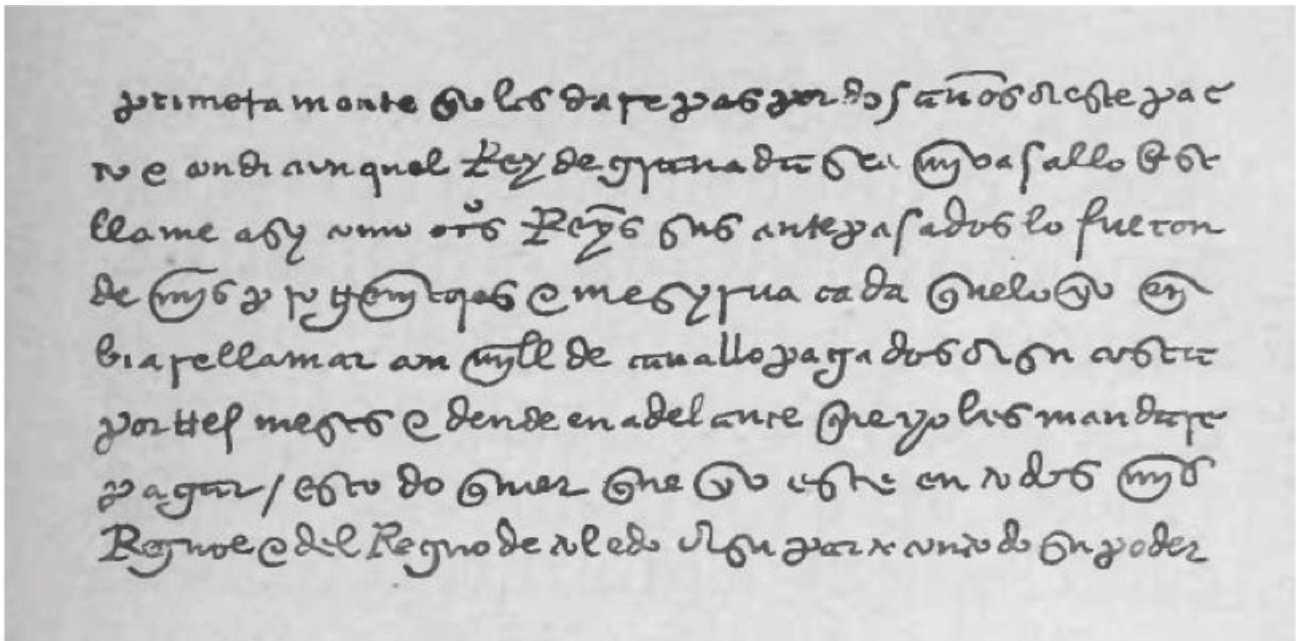 primeramente que yo les dare pas por dos años deste pac
to e condicion quel Rey de granada sea mj vasallo e se
llame asy como otrs Reys sus antepasados lo fueron
de mjs e me syrua cada que lo yo en
biare llamar con mjll de cauallo pagados de su costa
por tres meses e dende en adelante que yo les mandare
pagar / esto do quier que yo este en todos mjs
Regnos e del Regno de toledo de su parte con todo su poder